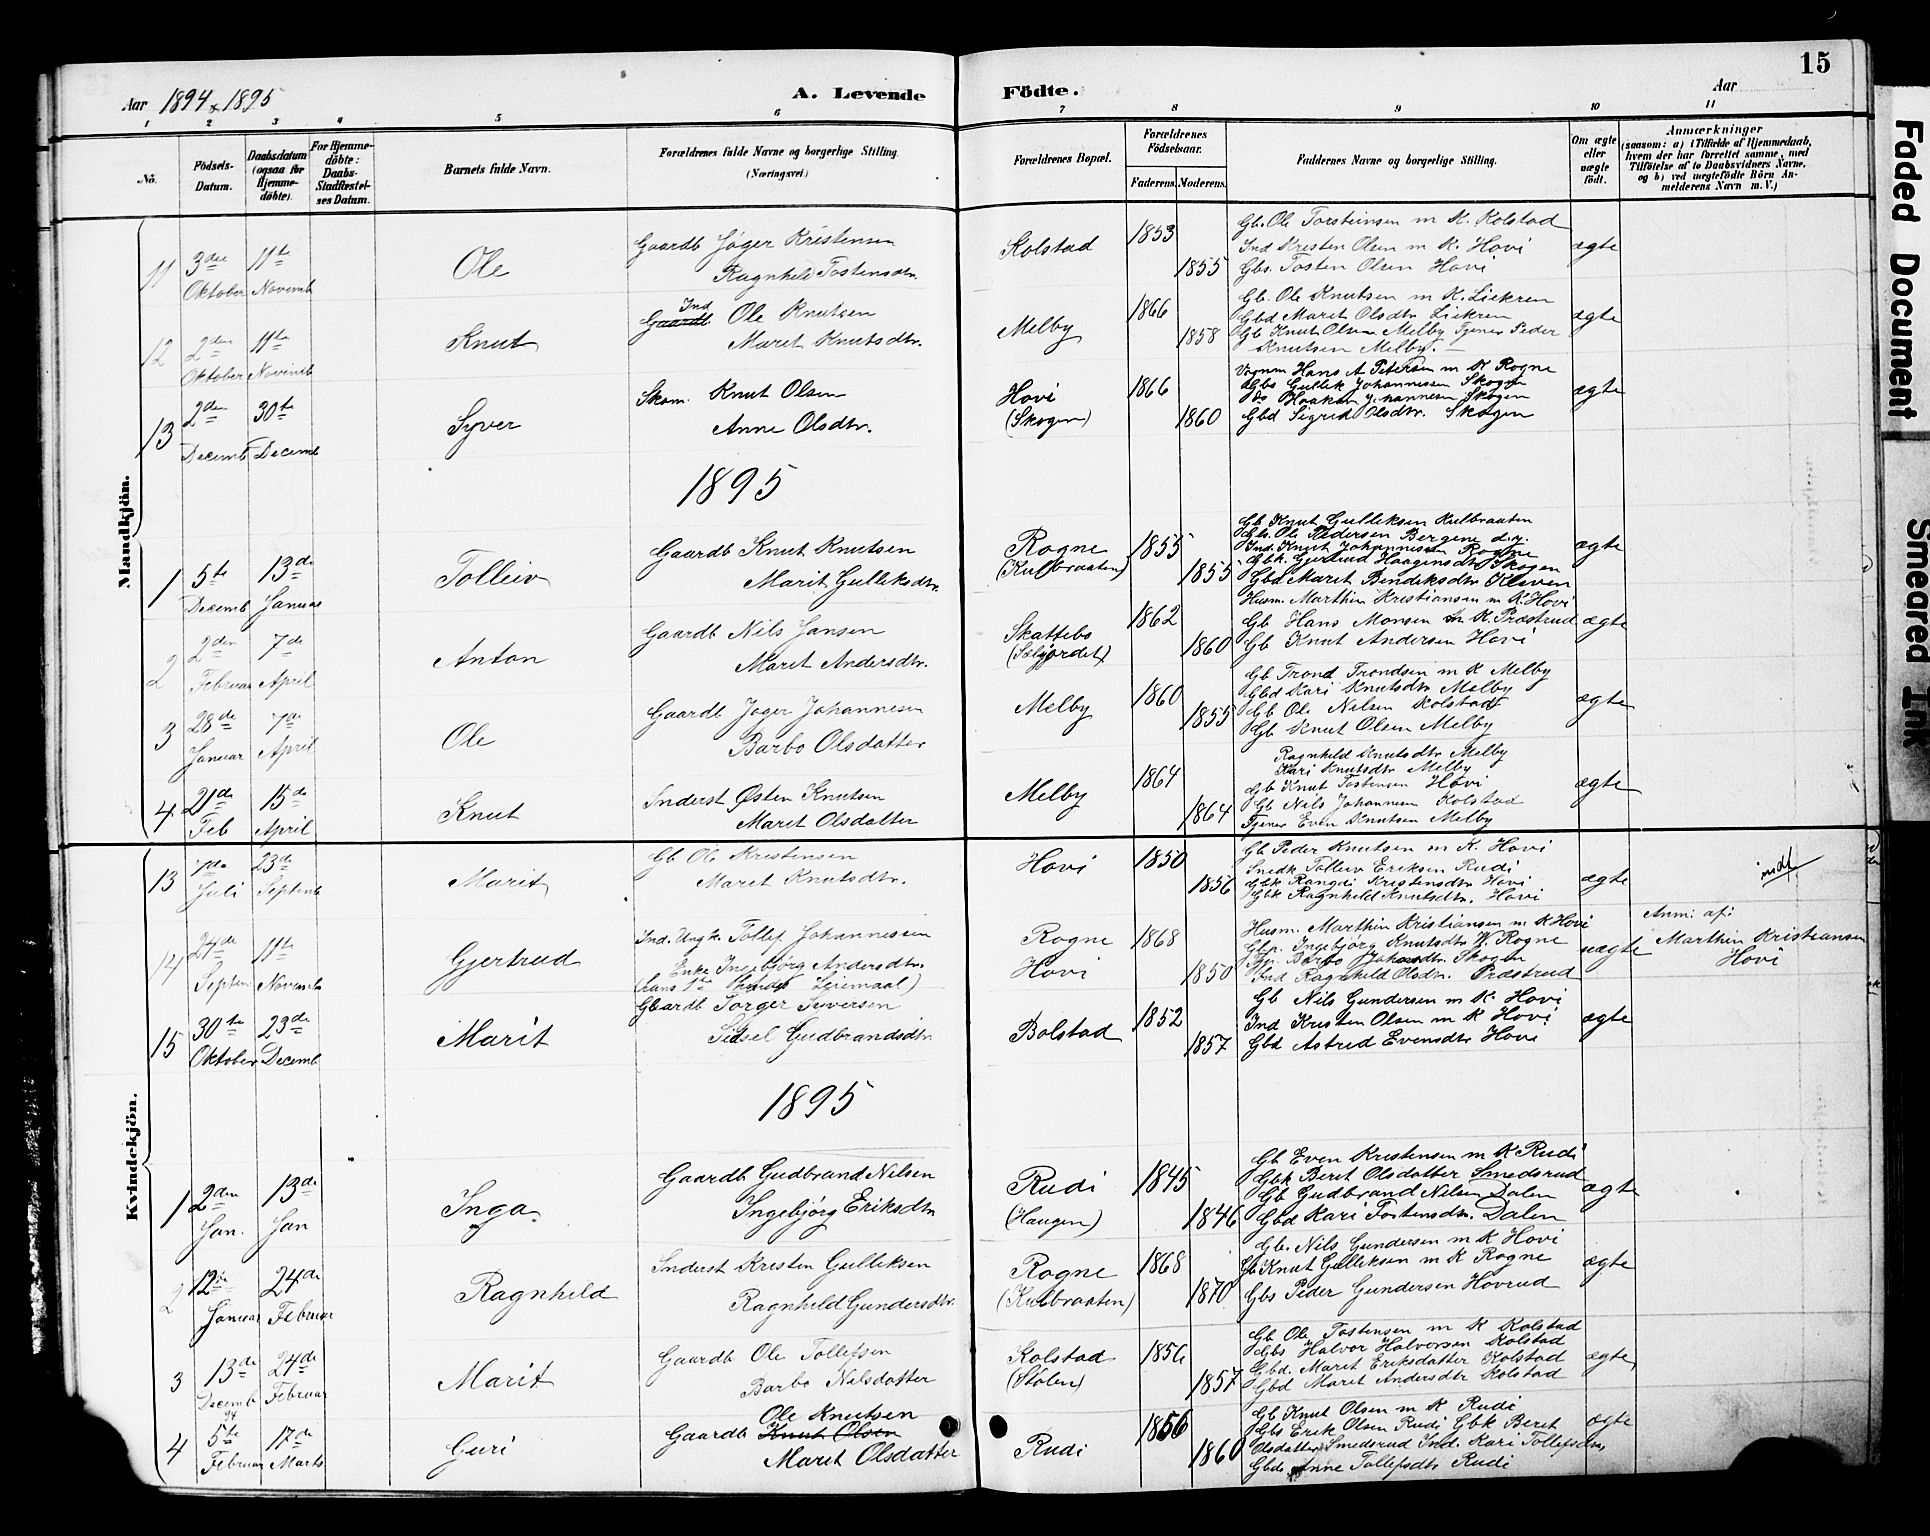 15
Aar 1894 & 1895
A. Levende Födte.
Aar
1 2 3 4 5 6 7 8 9 10 11
No.
Födsels-Datum.
Daabsdatum (ogsaa for Hjemmedöbte).
For Hjemmedöbte: Daabs-Stadfæstelses Datum.
Barnets fulde Navn.
Forældrenes fulde Navne og borgerlige Stilling. (Næringsvei.)
Forældrenes Bopæl.
Forældrenes Födselsaar.
Faderens. Moderens.
Faddernes Navne og borgerlige Stilling.
Om ægte eller uægte födt.
Anmærkninger
(saasom: a) i Tilfælde af Hjemmedaab, hvem der har forrettet samme, med Tilföielse af to Daabsvidners Navne, og b) ved uægtefödte Börn Anmelderens Navn m. V.)
Mandkjön.
11 3den Oktober 11te Novemb Ole
Gaardb Jøger Kristensen
Ragnhild Tostensdtr
Kolstad 1853 1855
Gb. Ole Torsteinsen m K. Kolstad
Ind Kresten Olsen m K. Hovi
Gbs. Tosten Olsen Hovi
ægte
12 2den Oktober 11te Novemb Knut
Ind
Gaardb Ole Knutsen
Marit Knutsdtr.
Melby 1866 1858
Gb. Ole Knutsen m K. Liekren
Gbd Marit Olsdtr Liekren
Gb Knut Olsen Melby Tjener Peder
Knutsen Melby.
ægte
13 2den Decemb 30te Decemb Syver
Skom. Knut Olsen
Anne Olsdtr.
Hovi (Skogen) 1866 1860
Vognm Hans A Petersen m K Rogne
Gbs Gullik Johannessen Skogen
ds Haaken Johannesen Skogen
Gbd Sigrid Olsdtr. Skogen
ægte
1895
1 5te Decemb 13de Januar Tolleiv
Gaardb Knut Knutsen
Marit Gulliksdtr.
Rogne (Kulbraaten) 1855 1855
Gb Knut Gulliksen Kulbraaten
Gbs. Ole Pedersen Bergene d.y.
Ind. Knut Johannessen Rogne
Gbk. Gjertrud Haagensdtr Skogen
Gbd Marit Bendiksdtr Kleven
ægte
2 2den Februar 7de April Anton
Gaardb Nils Jansen
Marit Andersdtr.
Skattebo (Sælgjordet) 1862 1860
Husm. Marthin Kristiansen m K. Hovi
Gb Hans Monsen m K. Præstrud
Gb Knut Andersen Hovi
ægte
3 28de Januar 7de April Ole
Gaardb Jøger Johannesen
Barbo Olsdatter
Melby 1860 1855
Gb Trond Trondsen m K Melby
Gbd Kari Knutsdtr Melby
Gb Ole Nilsen Kolstad
Gb Knut Olsen Melby
ægte
4 21de Feb 15de April Knut
Inderst Østen Knutsen
Marit Olsdatter
Melby 1864 1864
Ragnhild Knutsdtr Melby
Kari Knutsdtr Melby
Gb Knut Tostensen Hovi
Gb Nils Johannesen Kolstad
Tjener Even Knutsen Melby
ægte
Kvindekjön.
13 1de Juli 23de Septemb Marit
Gb Ole Kristensen
Marit Knutsdtr.
Hovi 1850 1856
Gb Peder Knutsen m K. Hovi
Snedk Tolleiv Eriksen Rudi
Gbk Rangdi Kristensdtr Hovi
Gbk Ragnhild Knutsdtr. Hovi
ægte
14 24de Septem 11te Novemb Gjertrud
Ind. Ungk. Tollef Johannessen
Enke Ingebjørg Andersdtr.
(hans 1ste hendes Leiermaal)
Rogne
Hovi
1868 1850
Husm. Marthin Kristiansen m K Hovi
Gbp. Ingebjørg Knutsdtr N. Rogne
Barbo Johansdtr. Skogen
Ind Ragnhild Olsdtr. Præstrud
uægte
Anm: af:
Marthin Kristiansen
Hovi
15 30te Oktober 23de Decemb Marit
Gaardb Torger Syversen
Sidsel Gudbrandsdtr
Bolstad 1852 1857
Gb Nils Gundersen m K. Hovi
Ind Kristen Olsen m K Hovi
Gbd Astrid Evensdtr Hovi
ægte
1895
1 2den Jan. 13de Jan Inga
Gaardb Gudbrand Nilsen
Ingebjørg Eriksdtr
Rudi (Haugen) 1845 1846
Gb Even Kristensen m K Rudi
Gbk Berit Olsdatter Smedsrud
Gb Gudbrand Nilsen Dalen
Gbd Kari Tostensdtr. Dalen
ægte
2 12te Januar 24de Februar Ragnhild
Inderst Kristen Gulliksen
Ragnhild Gundersdtr.
Rogne (Kulbraaten) 1868 1870
Gb. Nils Gundersen m K Hovi
Gb Knut Gulliksen m K Rogne
Gbs Peder Gundersen Hovrud
ægte
3 13de Decemb 94 24de Februar Marit
Gaardb Ole Tollefsen
Barbo Nilsdatter
Kolstad (Stølen) 1856 1857
Gb Ole Tostensen m K Kolstad
Gbs Halvor Halvorsen Kolstad
Gbd. Marit Eriksdatter Kolstad
Gbd Marit Andersdtr Kolstad
ægte
4 5te Februar 17de Marts Guri
Ole Knutsen
Gaardb Knut Olsen
Marit Olsdatter
Rudi 1856 1860
Gb Knut Olsen m K Rudi
Gbs Erik Olsen Rudi Gbk Berit
Olsdatter Smedsrud Ind. Kari Tollefsdtr,
Gbd. Anne Tollefsdtr Rudi
ægte
Faded Document
Smeared Ink